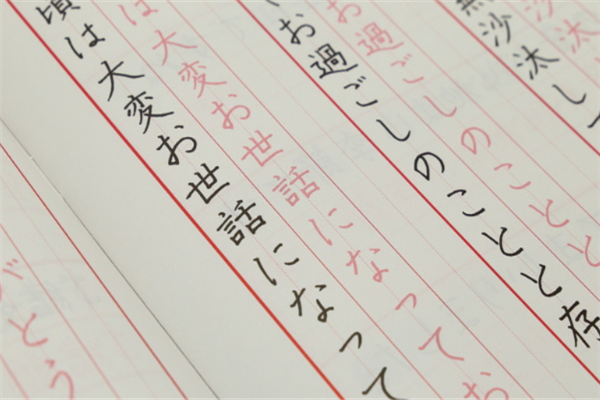 沙汰
無沙汰し
お過ごしのことと
お過ごしのことと存
は大変お世話になってお
頃は大変お世話になって
がとう